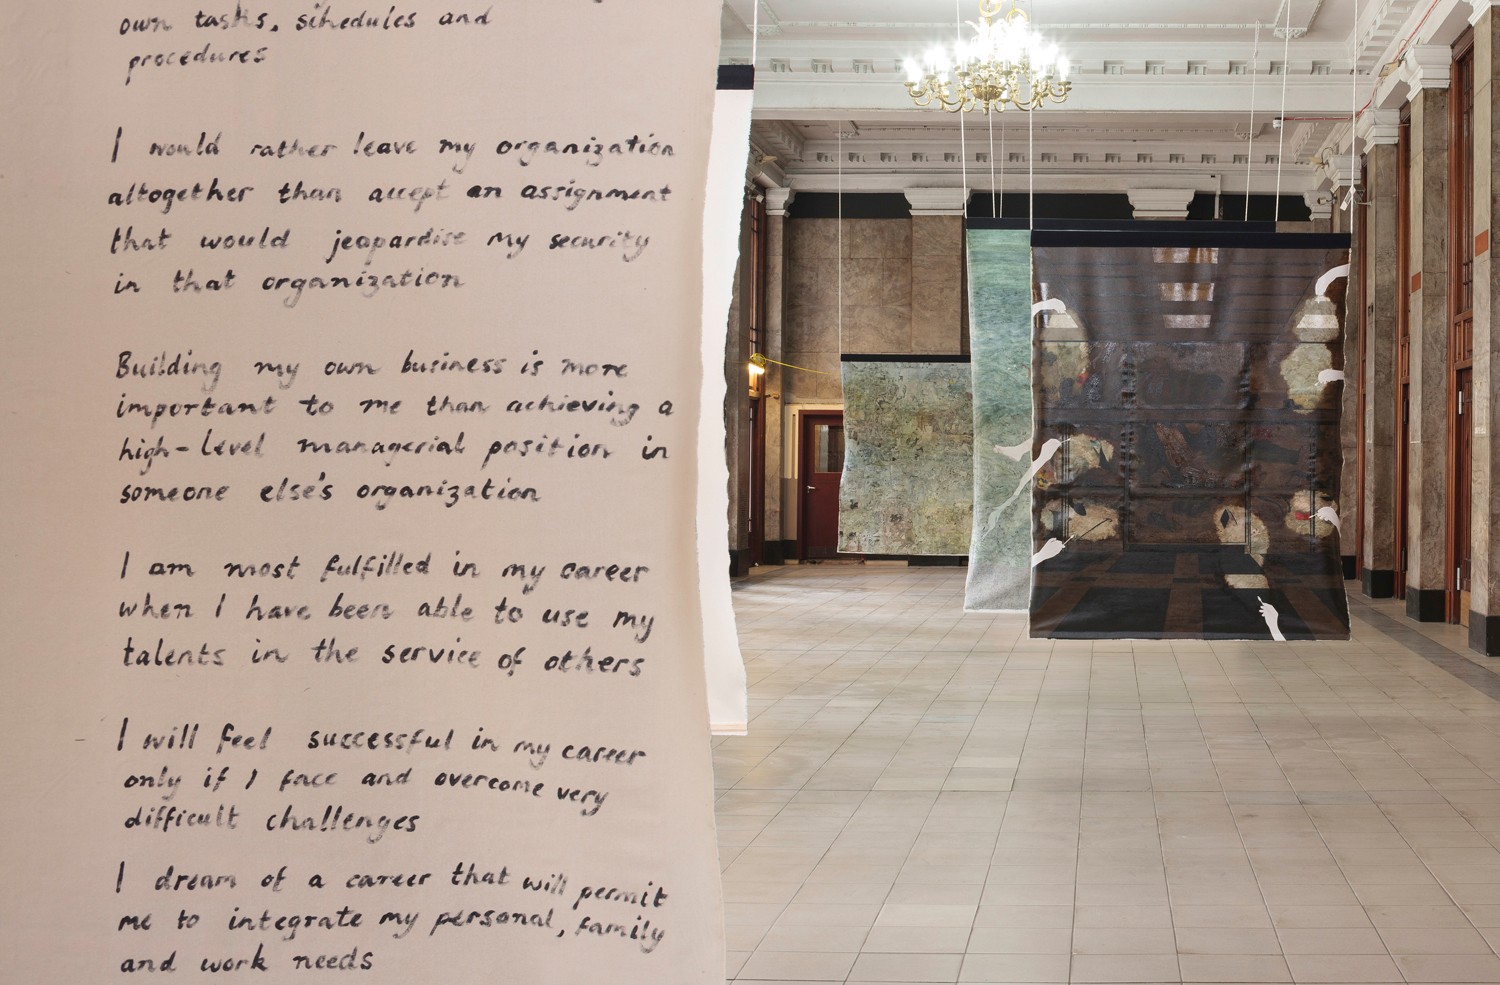 own tasks, schedules and
procedures
I would rather leave my organization
altogether than accept an assignment
that would jeapardise my security
in that organization
Building my own business is more
important to me than achieving a
high-level managerial position in
someone else's organization
I am most fulfilled in my career
when I have been able to use my
talents in the service of others
I will feel successful in my career
only if I face and overcome very
difficult challenges
I dream of a career that will permit
me to integrate my personal, family
and work needs